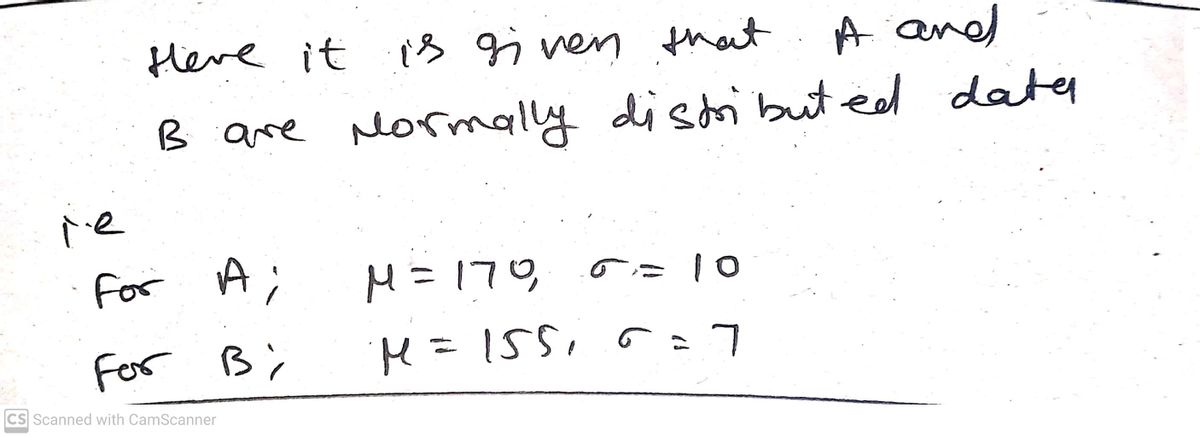 Here it is given that A and
B are Normally distributed data
i.e
For A; μ = 170, σ = 10
For B; μ = 155, σ = 7
CS Scanned with CamScanner